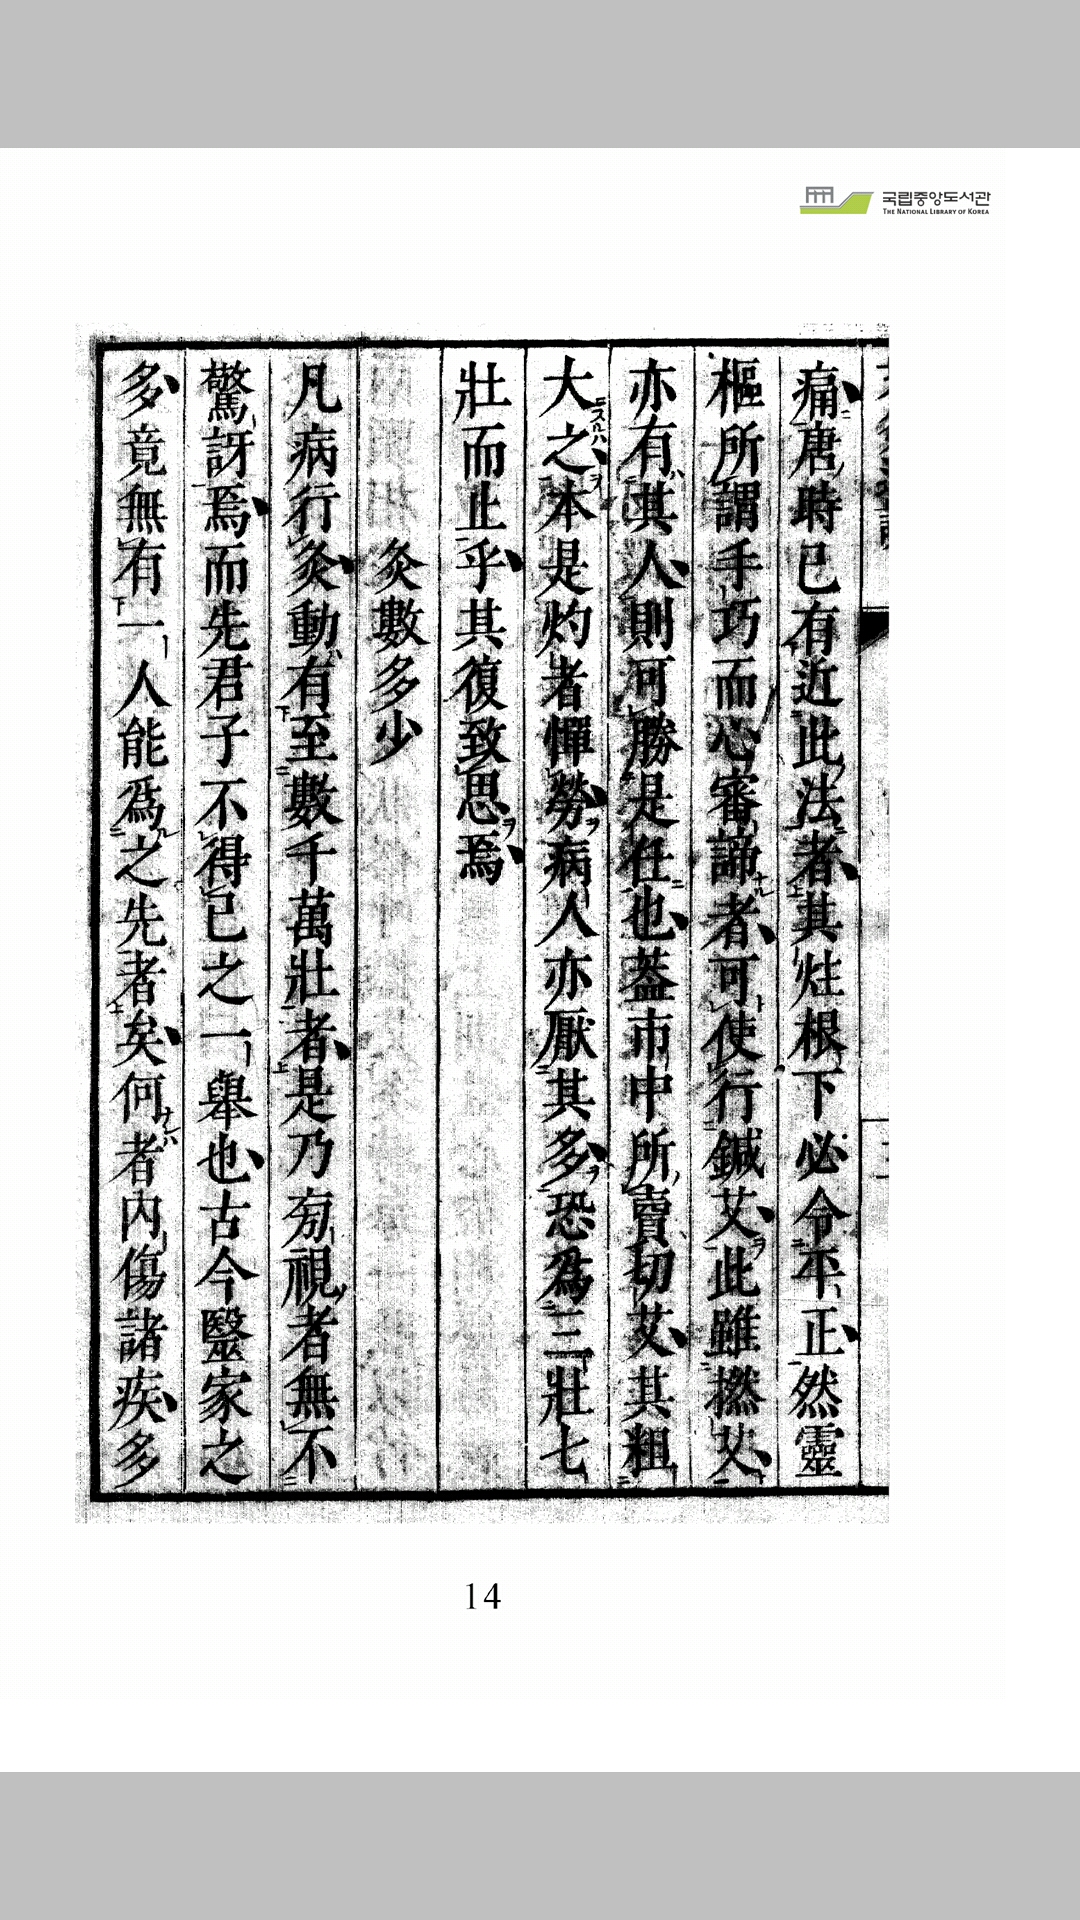 국립중앙도서관
THE NATIONAL LIBRARY OF KOREA
痛唐時已有近此法者其炷根下必令平正然靈
樞所謂手巧而心審諦者可使行鍼艾此雖撚艾
亦有其人則可勝是任也蓋市中所賣切艾其粗
大之本是灼者憚勞病人亦厭其多恐為三壯七
壯而止乎其復致思焉
灸數多少
凡病行灸動有至數千萬壯者是乃旁視者無不
驚訝焉而先君子不得已之一舉也古今醫家之
多竟無有一人能為之先者矣何者內傷諸疾多
14